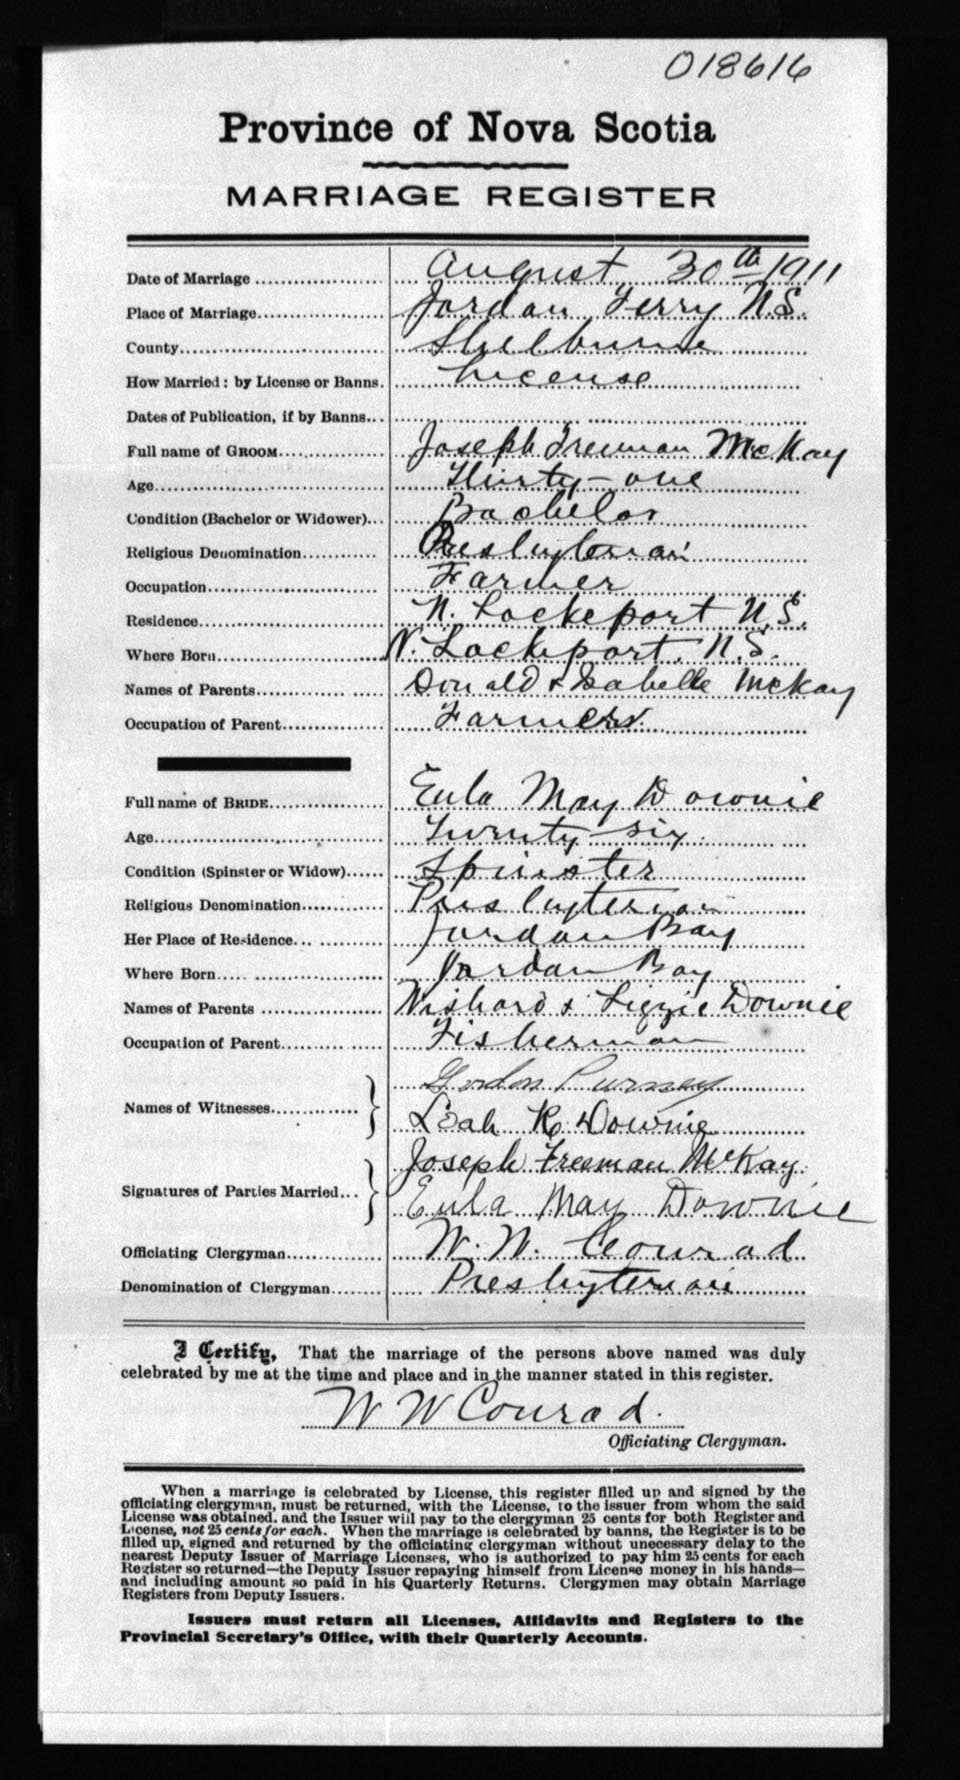 018616
Province of Nova Scotia
MARRIAGE REGISTER
Date of Marriage August 30th 1911
Place of Marriage Jordan Ferry N.S.
County Shelburne
How Married: by License or Banns. License
Dates of Publication, if by Banns
Full name of GROOM Joseph Freeman McKay
Age Thirty-one
Condition (Bachelor or Widower) Bachelor
Religious Denomination Presbyterian
Occupation Farmer
Residence N. Lockeport N.S.
Where Born N. Lockeport. N.S.
Names of Parents Donald & Isabelle McKay
Occupation of Parent Farmers
Full name of BRIDE Eula May Downie
Age Twenty-six
Condition (Spinster or Widow) Spinster
Religious Denomination Presbyterian
Her Place of Residence Jordan Bay
Where Born Jordan Bay
Names of Parents & Lizzie Downie
Occupation of Parent Fisherman
Names of Witnesses Gordon Purney
Leah R. Downie
Signatures of Parties Married Joseph Freeman McKay
Eula May Downie
Officiating Clergyman W. W. Conrad
Denomination of Clergyman Presbyterian
I Certify, That the marriage of the persons above named was duly
celebrated by me at the time and place and in the manner stated in this register.
W W Conrad.
Officiating Clergyman.
When a marriage is celebrated by License, this register filled up and signed by the
officiating clergyman, must be returned, with the License, to the issuer from whom the said
License was obtained. and the Issuer will pay to the clergyman 25 cents for both Register and
License, not 25 cents for each. When the marriage is celebrated by banns, the Register is to be
filled up, signed and returned by the officiating clergyman without unecessary delay to the
nearest Deputy Issuer of Marriage Licenses, who is authorized to pay him 25 cents for each
Register so returned—the Deputy Issuer repaying himself from License money in his hands—
and including amount so paid in his Quarterly Returns. Clergymen may obtain Marriage
Registers from Deputy Issuers.
Issuers must return all Licenses, Affidavits and Registers to the
Provincial Secretary's Office, with their Quarterly Accounts.